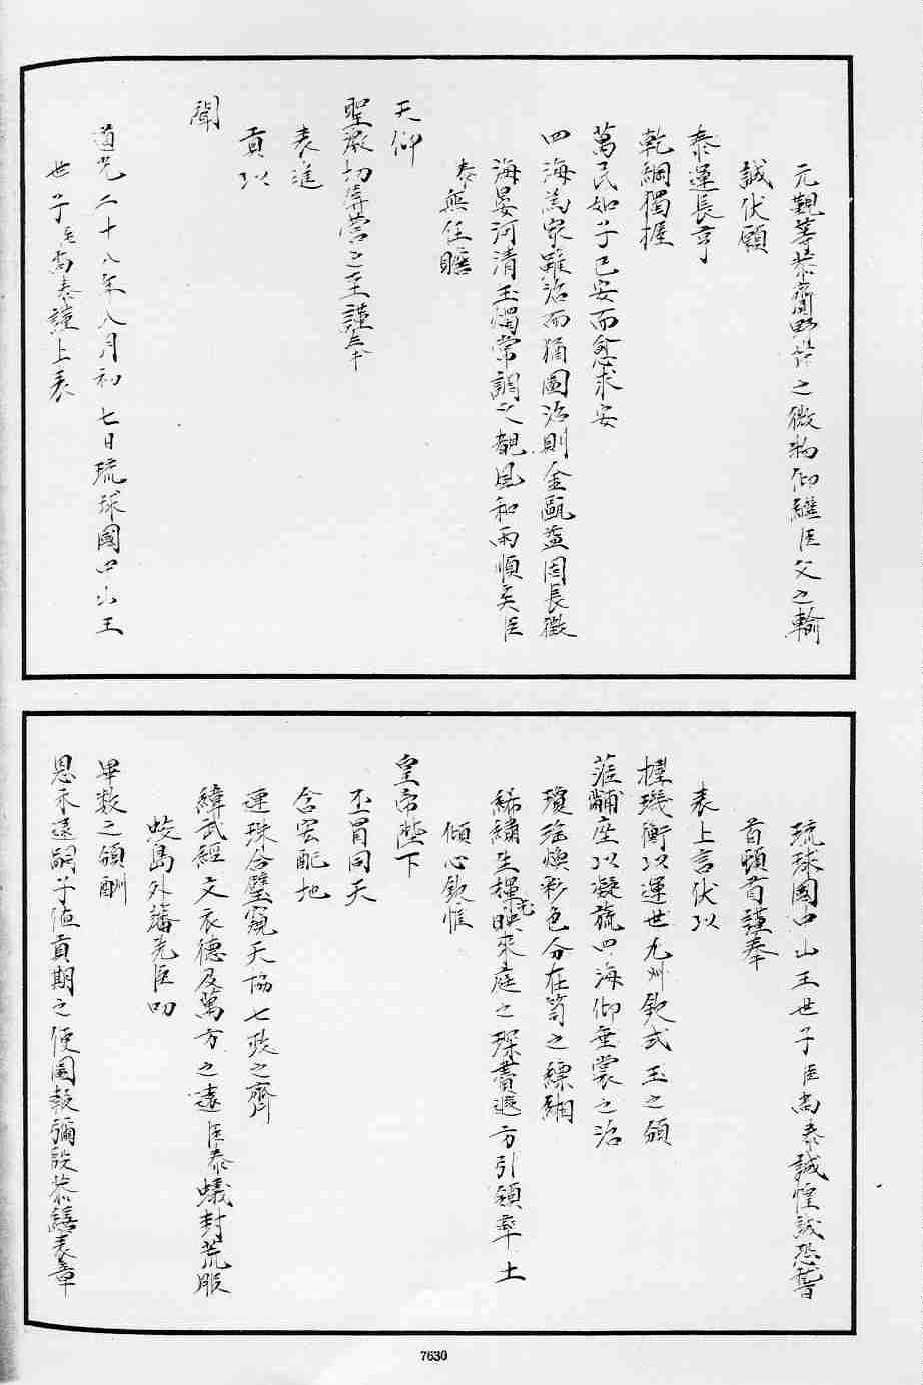 元觀等恭齎野芹之微物仰繼臣父之輸
誠伏願
泰運長亨
乾綱獨握
萬民如子已安而愈求安
四海為家雖治而猶圖治則金甌益固長徵
海晏河清玉燭常調又覩風和雨順矣臣
泰無任瞻
天仰
聖激切屏營之至謹奉
表進
貢以
聞
道光二十八年八月初七日琉球國中山王
世子臣尚泰謹上表
琉球國中山王世子臣尚泰誠惶誠恐稽
首頓首謹奉
表上言伏以
握璣衡以運世九州欽式玉之頒
蒞黼座以凝旒四海仰垂裳之治
瓊瑤煥彩色分在笥之縹緗
絺繡生輝光映來庭之琛賮遐方引領率土
傾心欽惟
皇帝陛下
丕冒同天
含宏配地
連珠合璧窺天協七政之齊
緯武經文衣德及萬方之遠臣泰蟻封荒服
蛟島外藩先臣叨
畢數之領酬
恩禾遠嗣子值貢期之使圖報彌殷恭繕表章
7630